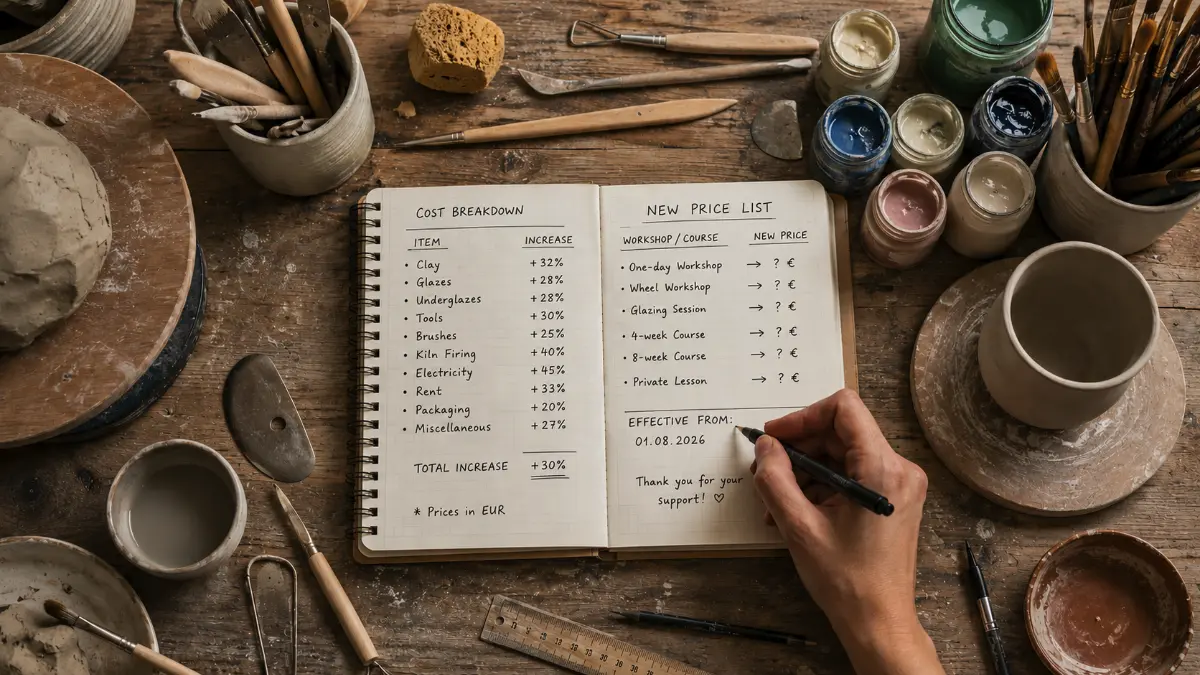 COST BREAKDOWN
ITEM INCREASE
• Clay +32%
• Glazes +28%
• Underglazes +28%
• Tools +30%
• Brushes +25%
• Kiln Firing +40%
• Electricity +45%
• Rent +33%
• Packaging +20%
• Miscellaneous +27%
TOTAL INCREASE +30%
* Prices in EUR
NEW PRICE LIST
WORKSHOP / COURSE NEW PRICE
• One-day Workshop → ? €
• Wheel Workshop → ? €
• Glazing Session → ? €
• 4-week Course → ? €
• 8-week Course → ? €
• Private Lesson → ? €
EFFECTIVE FROM:
01.08.2026
Thank you for your
support! ♡